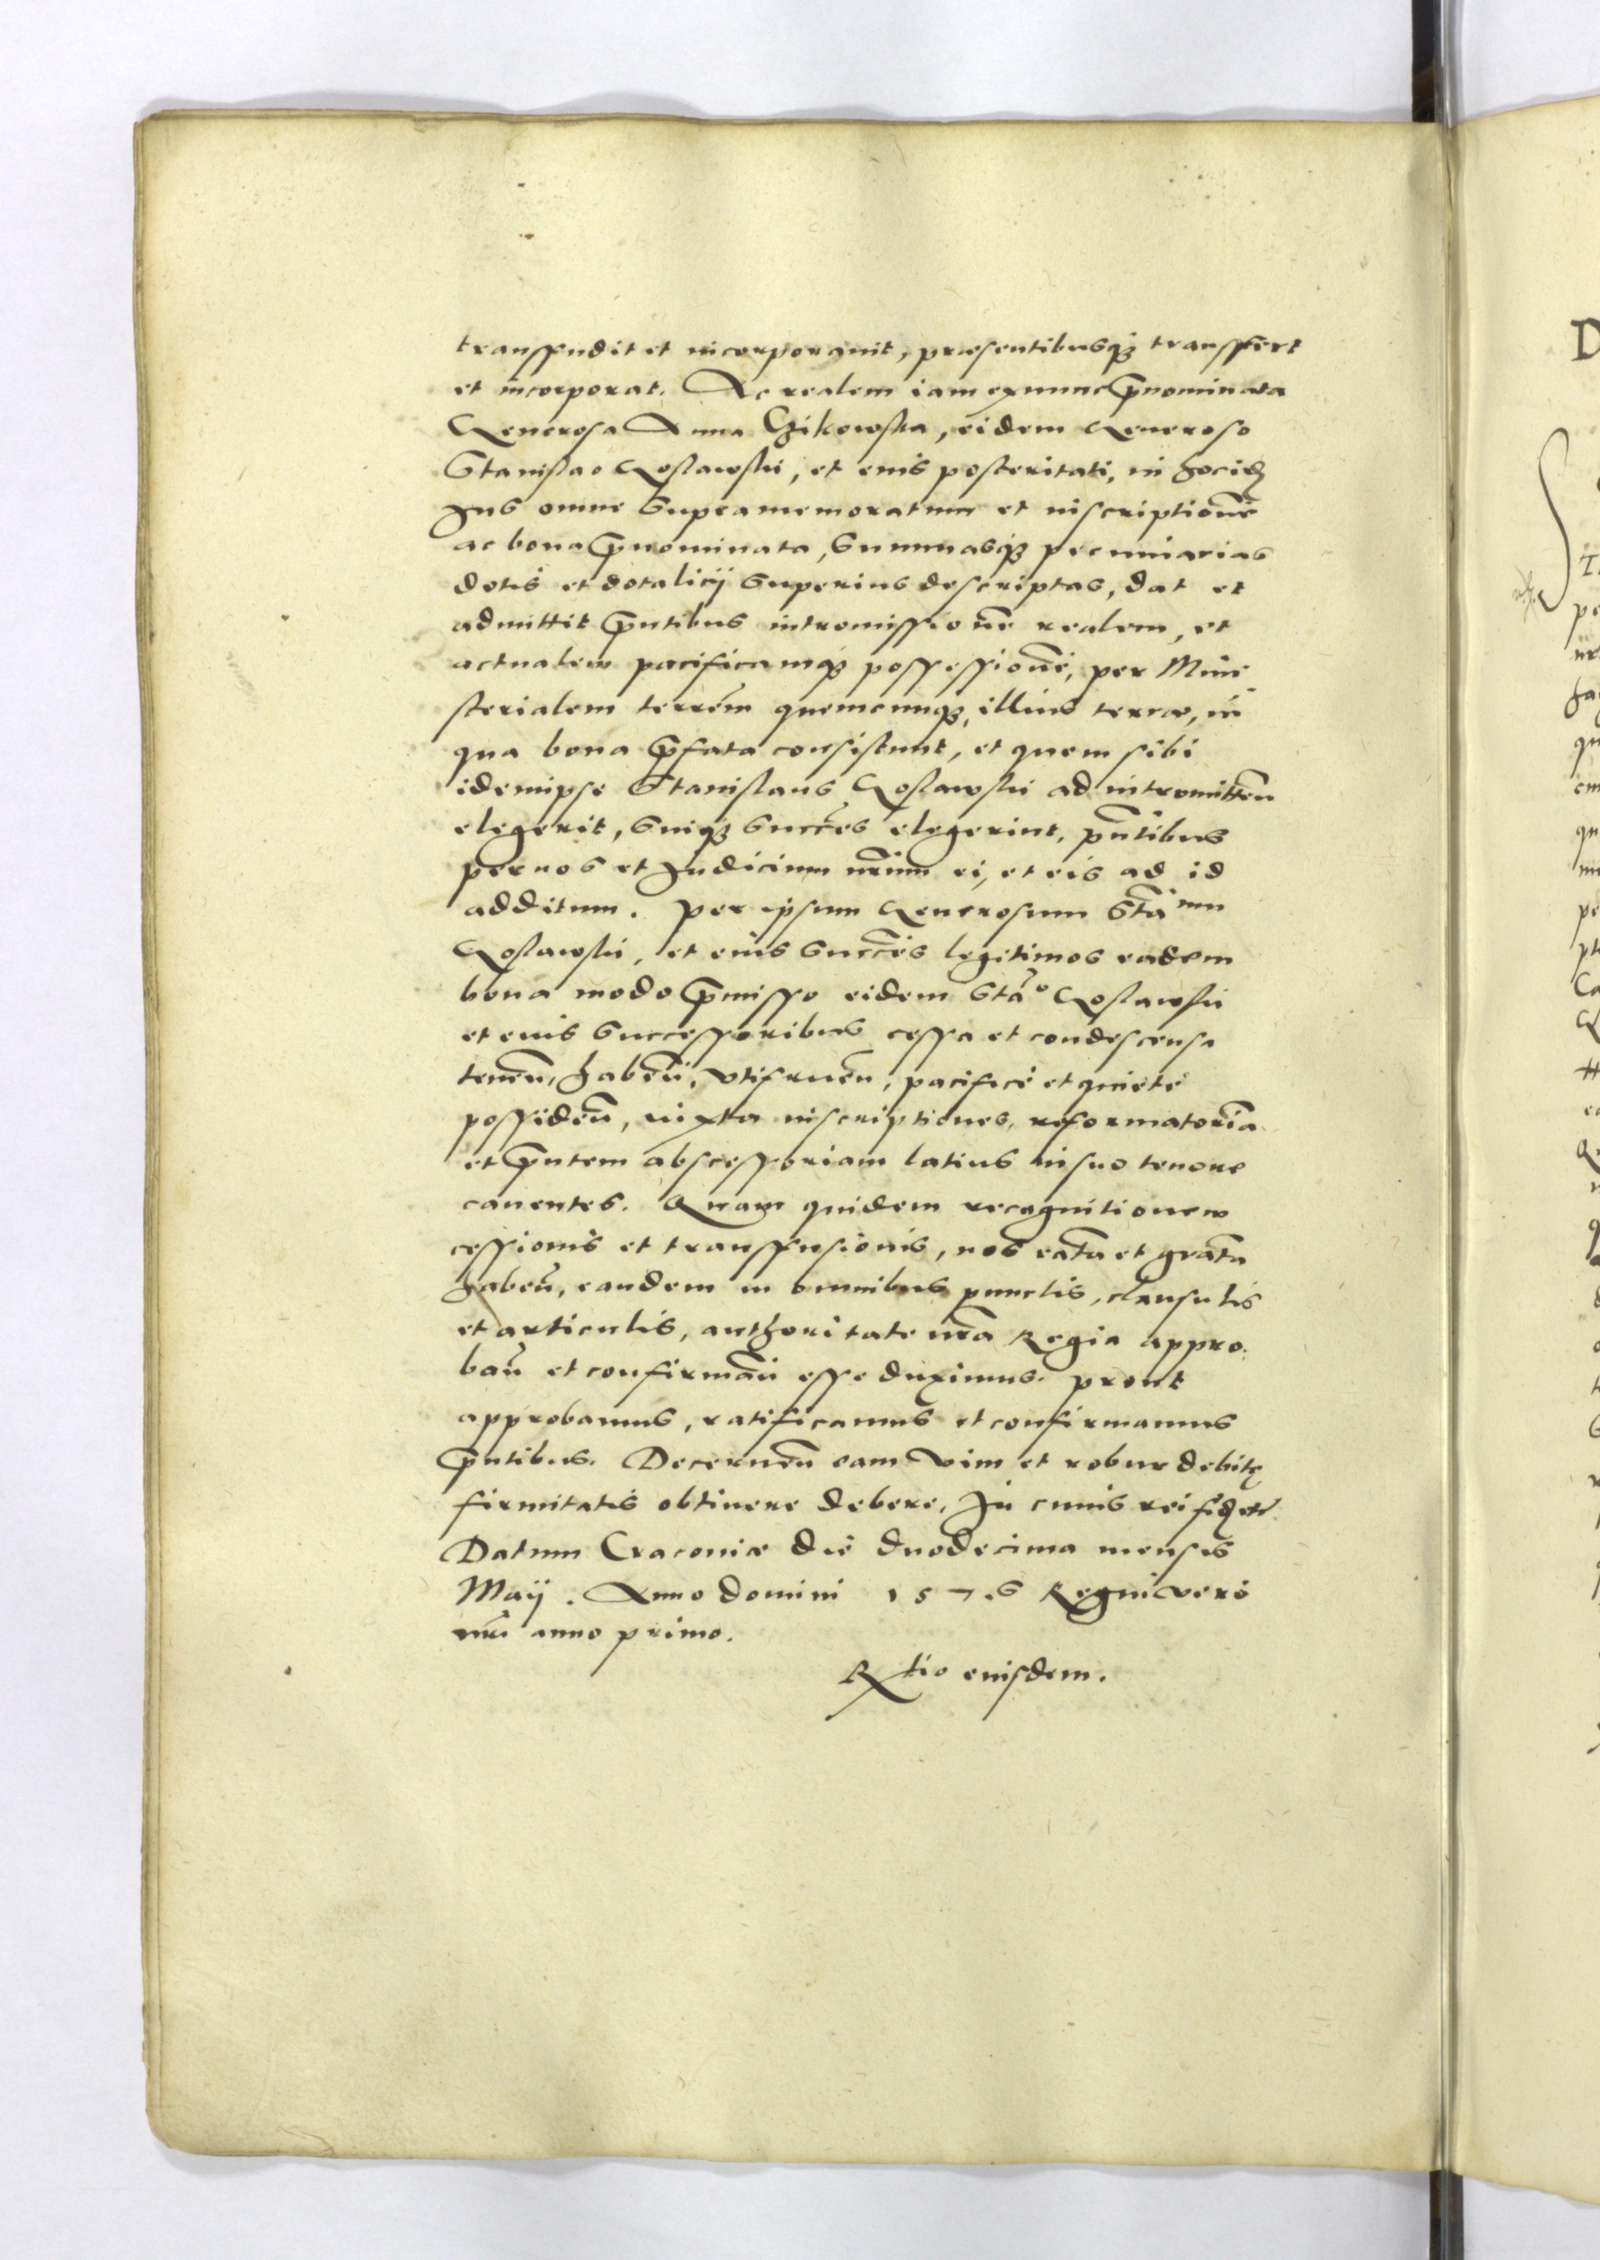 transffudit et incorporauit, præsentibusq̃ transffert
et incorporat. Ac realem iam exnunc p̃nominata
Generosa Anna Czikowska, eidem Generoso
Stanislao Goslawski, et eius posteritati, in hocidem
Jus omne supramemoratum et inscriptionẽ
ac bona p̃nominata, summasq̃ pecuniarias
dotis et dotalicij superius descriptas, dat et
admittit p̃ntibus intromissionẽ realem, et
actualem pacificamq̃ possessionẽ, per Mini
sterialem terrẽm quemcunq̃, illius terræ, in
qua bona p̃fata consistunt, et quem sibi
idemipse Stanislaus Goslawski ad intromittẽn
elegerit, suiq̃ succẽs elegerint, p̃ntibus
per nos et Judicium nr̃um ei, et eis ad id
additum. Per ipsum Generosum Stãum
Goslawski, et eius succẽs legitimos eadem
bona modo p̃misso eidem Stão Goslawski
et eius successoribus cessa et condescensa
tenẽn, habẽn, vtifruẽn, pacifice et quiete
possidẽn, iuxta inscriptiones, reformatoriã
et p̃ntem abscessoriam latius in suo tenore
cauentes. Quam quidem recognitionem
cessionis et transffusionis, nos ratã et gratã
habẽn, eandem in omnibus punctis, clausulis
et articulis, authoritate nr̃a Regia appro
bañ et confirmañ esse duximus. prout
approbamus, ratificamus et confirmamus
p̃ntibus. Decernẽn eam vim et robur debitę
firmitatis obtinere debere, In cuius rei fidem etc̃
Datum Cracoviæ die duodecima mensis
Maij. Anno domini 1576 Regni vero
nr̃i anno primo.
Rxtio eiusdem.